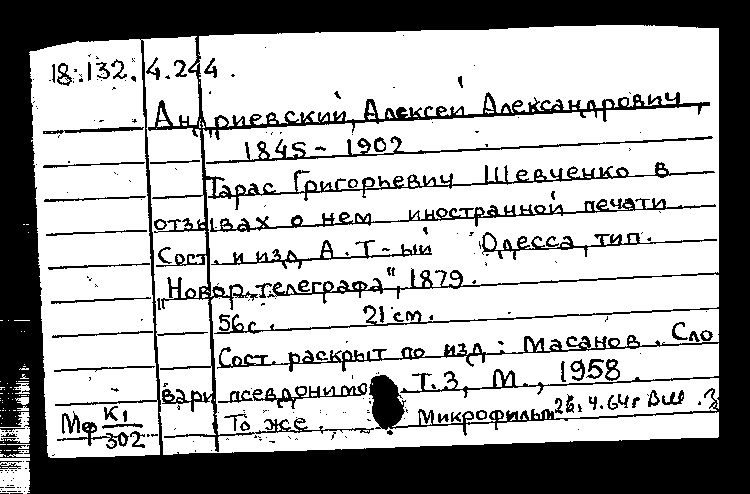 18.132.4.244.
Андриевский, Алексей Александрович,
1845 - 1902.
Тарас Григорьевич Шевченко в
отзывах о нем иностранной печати.
Сост. и изд. А. Т-ый Одесса, тип.
"Новор. телеграфа", 1879.
56с. 21 см.
Сост. раскрыт по изд.: Масанов. Сло
вари псевдонимо . Т.3, М., 1958.
Мф К1/302 То же. Микрофильм 4.64г